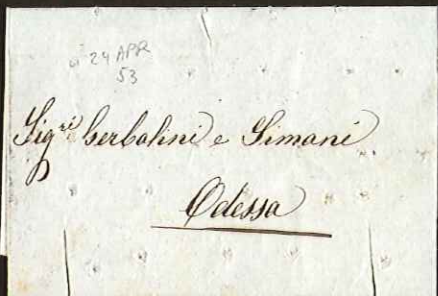 24 APR
53
Sigri Gerbolini e Simani
Odessa